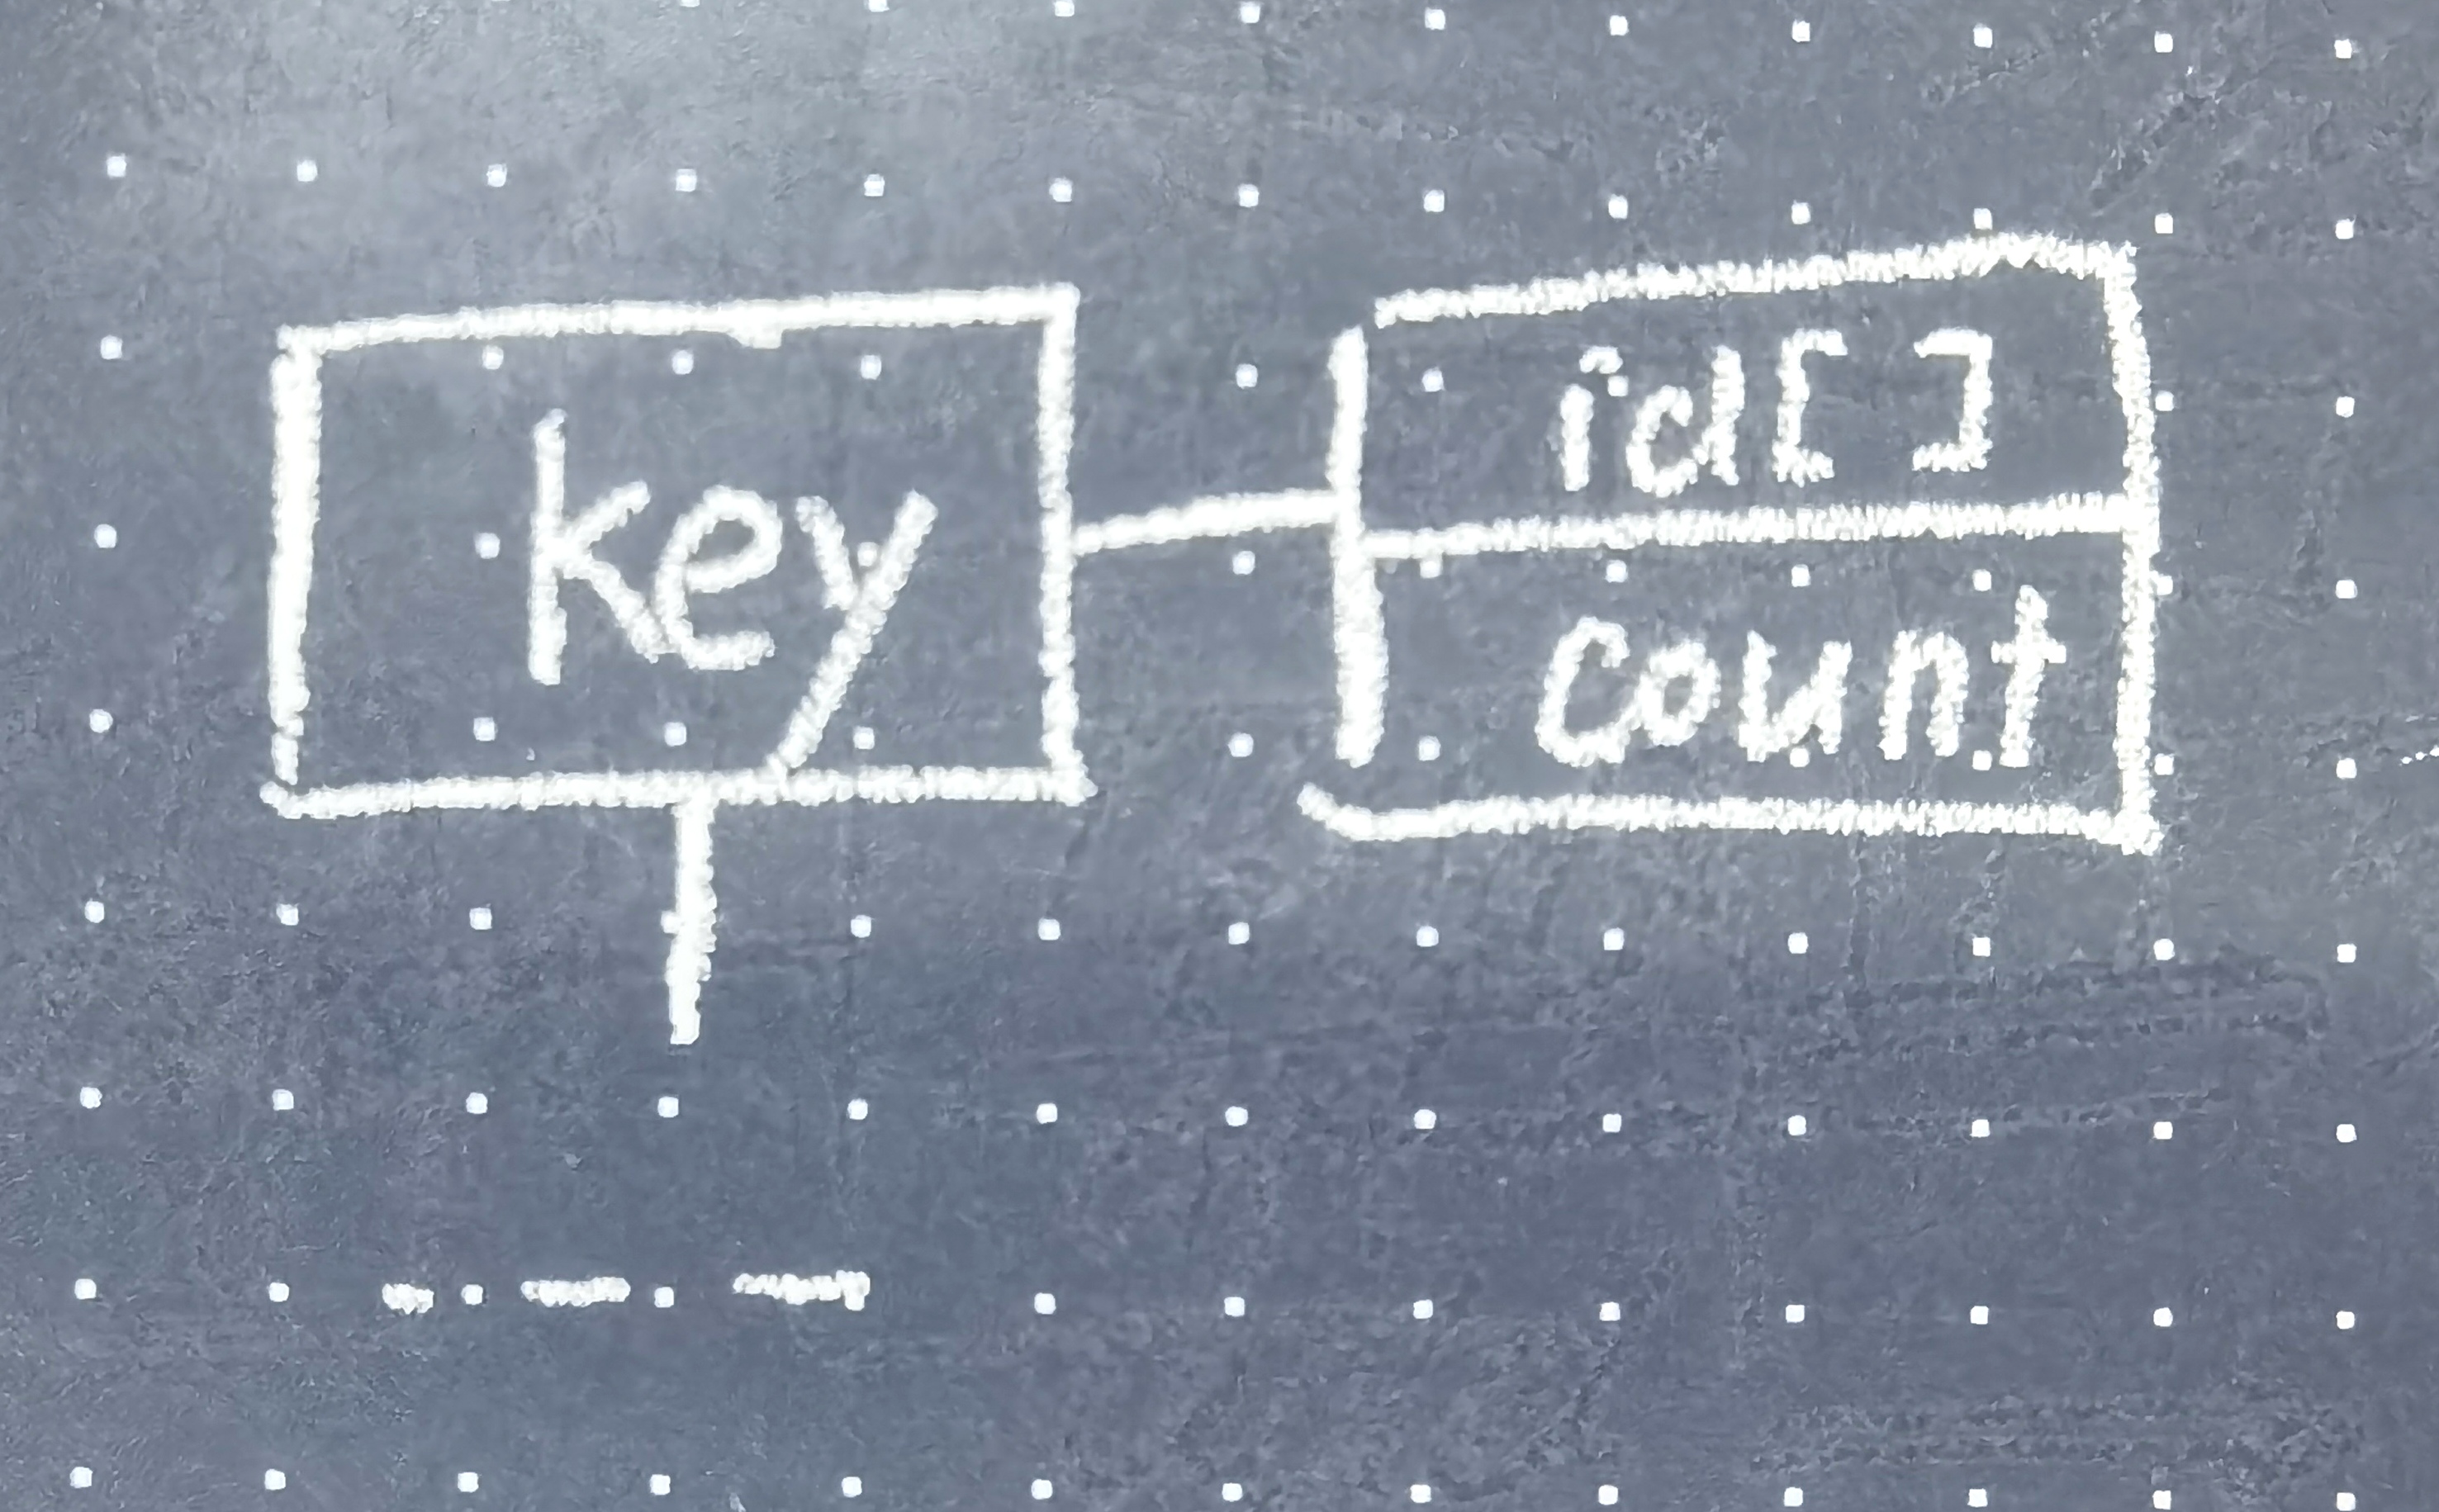 key
id[ ]
count